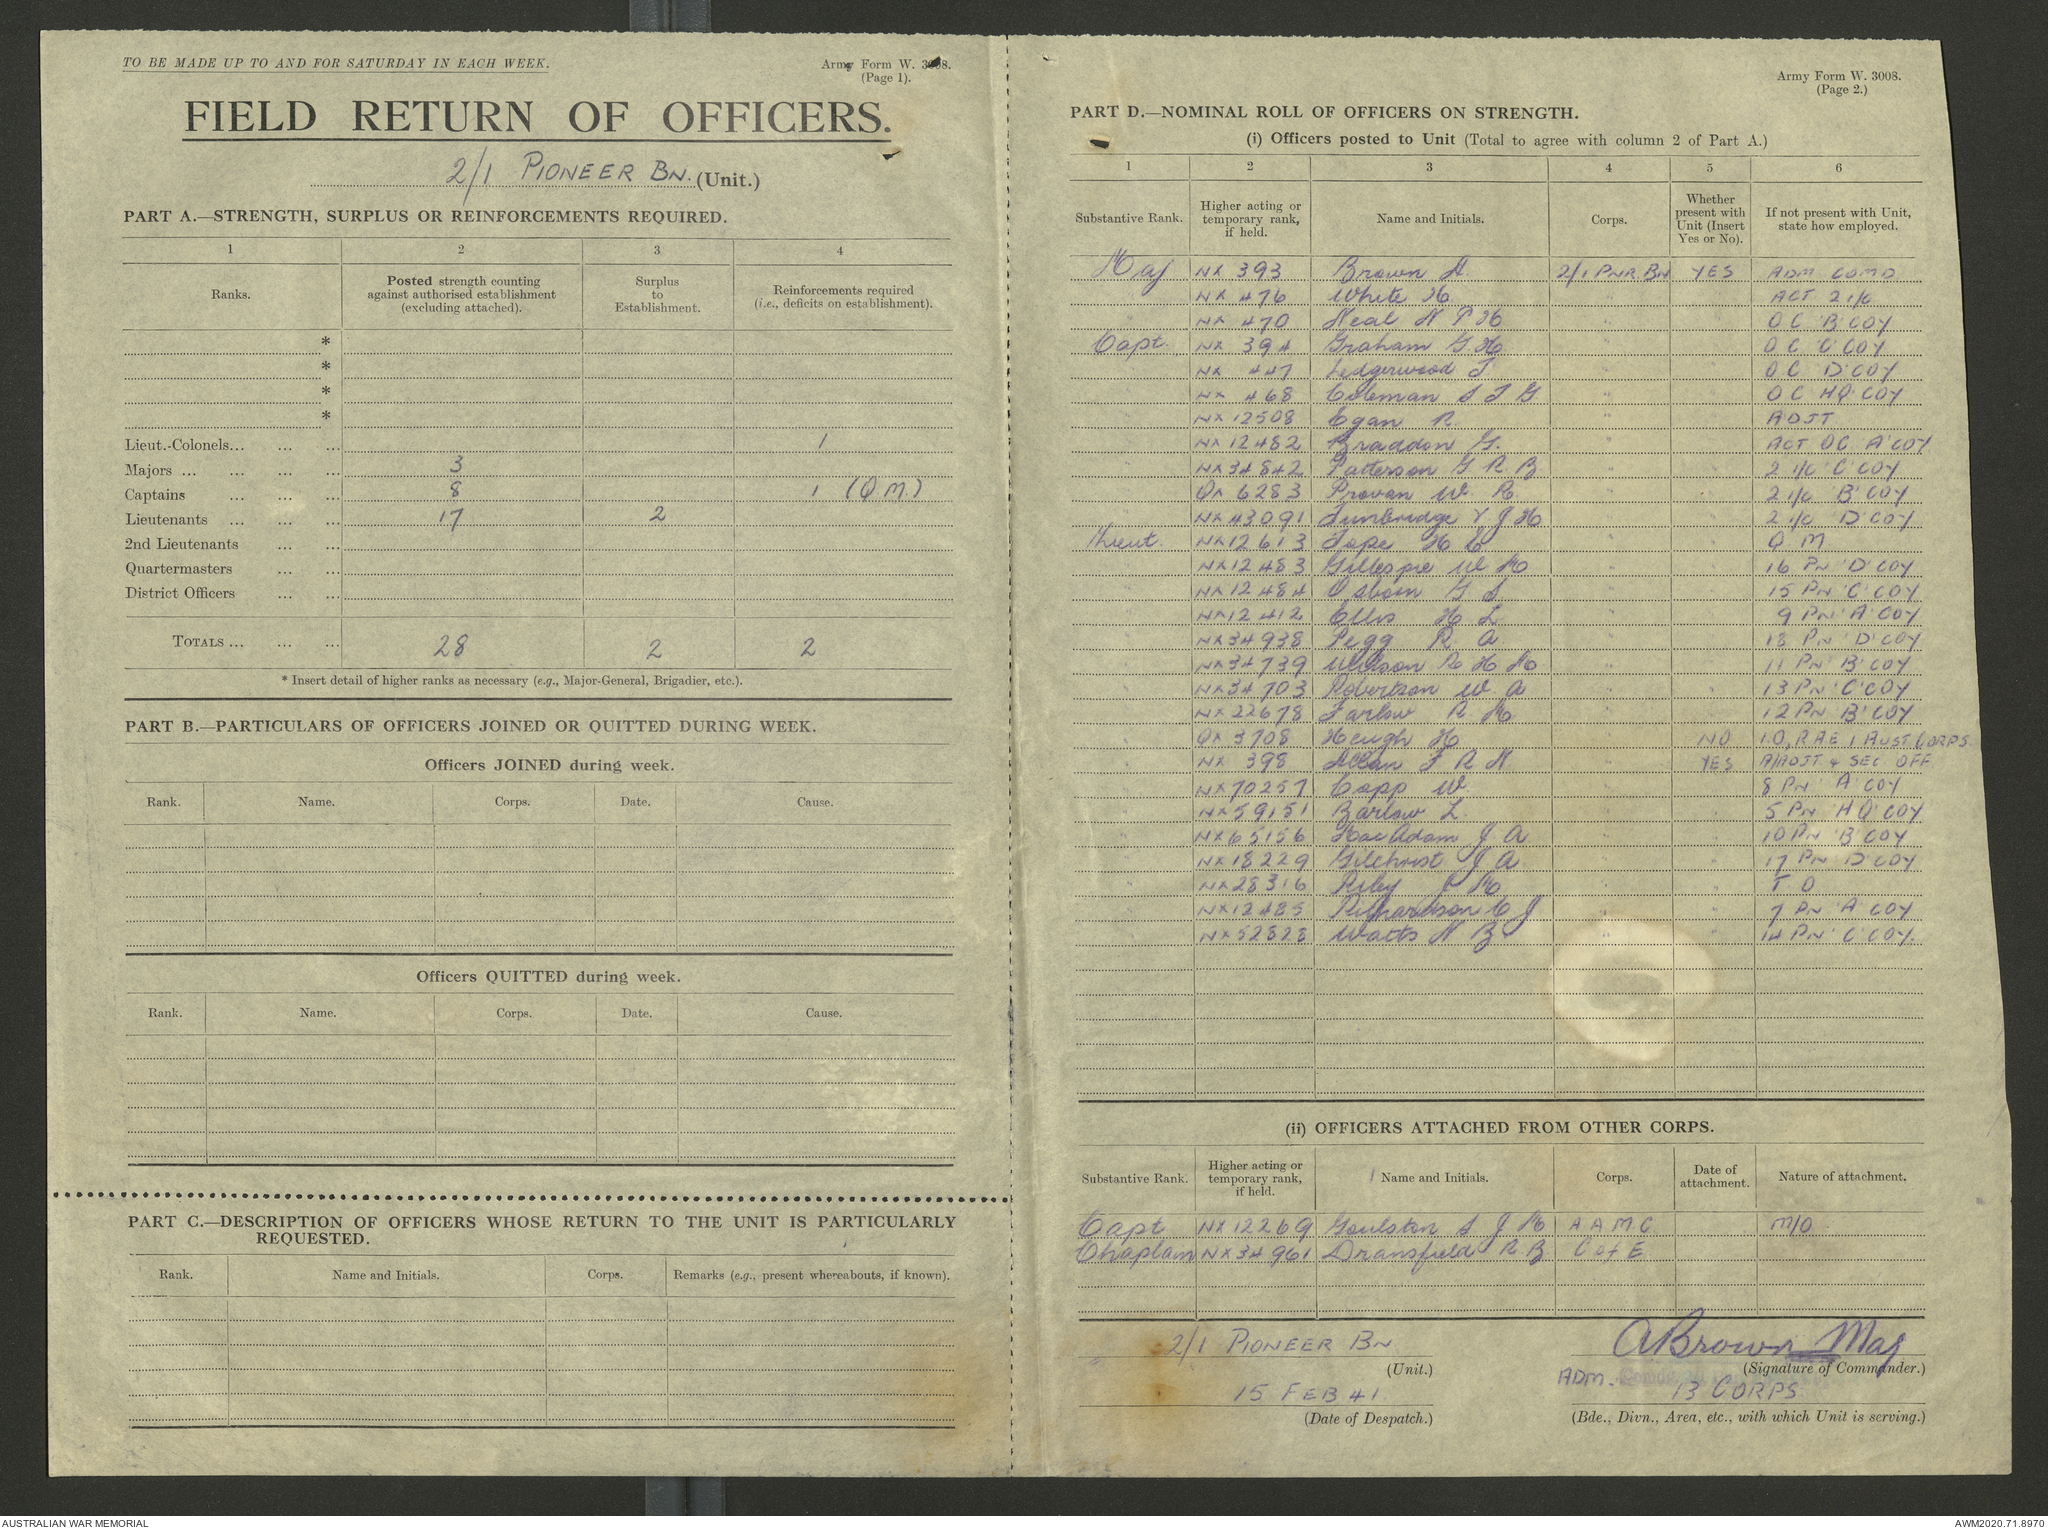 TO BE MADE UP TO AND FOR SATURDAY IN EACH WEEK.
Army Form W. 3008.
(Page 1).
FIELD RETURN OF OFFICERS.
2/1 PIONEER BN. (Unit.)
PART A.—STRENGTH, SURPLUS OR REINFORCEMENTS REQUIRED.
1 2 3 4
Ranks. Posted strength counting against authorised establishment (excluding attached). Surplus to Establishment. Reinforcements required (i.e., deficits on establishment).
*
*
*
*
Lieut.-Colonels... ... ... 1
Majors ... ... ... 3
Captains ... ... ... 8 1 (Q.M.)
Lieutenants ... ... ... 17 2
2nd Lieutenants ... ...
Quartermasters ... ...
District Officers ... ...
TOTALS ... ... ... 28 2 2
* Insert detail of higher ranks as necessary (e.g., Major-General, Brigadier, etc.).
PART B.—PARTICULARS OF OFFICERS JOINED OR QUITTED DURING WEEK.
Officers JOINED during week.
Rank. Name. Corps. Date. Cause.
Officers QUITTED during week.
Rank. Name. Corps. Date. Cause.
PART C.—DESCRIPTION OF OFFICERS WHOSE RETURN TO THE UNIT IS PARTICULARLY
REQUESTED.
Rank. Name and Initials. Corps. Remarks (e.g., present whereabouts, if known).
Army Form W. 3008.
(Page 2.)
PART D.—NOMINAL ROLL OF OFFICERS ON STRENGTH.
(i) Officers posted to Unit (Total to agree with column 2 of Part A.)
1 2 3 4 5 6
Substantive Rank. Higher acting or temporary rank, if held. Name and Initials. Corps. Whether present with Unit (Insert Yes or No). If not present with Unit, state how employed.
Maj NX 393 Brown A. 2/1 PNR. BN YES ADM COMD
" NX 476 White H. " ACT 2 i/c
" NX 470 Neal N P H " O C 'B' COY
Capt. NX 394 Graham G. H. " O C 'C' COY
NX 447 Ledgerwood T " O C 'D' COY
NX 468 Coleman S T G " O C HQ COY
NX 12508 Egan R. " ADJT
NX 12482 Braddon G. " ACT OC 'A' COY
NX 34842 Patterson G R B " 2 i/c 'C' COY
QX 6283 Provan W. R. " 2 i/c 'B' COY
NX 43091 Tunbridge V J H " 2 i/c 'D' COY
Lieut. NX 12613 Tope H C " Q M
" NX 12483 Gillespie W M " 16 PN 'D' COY
" NX 12484 Osborn G S " 15 PN 'C' COY
" NX 12412 Ellis H L " 9 PN 'A' COY
" NX 34938 Pegg R A " 18 PN 'D' COY
" NX 34739 Wilson R H M " 11 PN 'B' COY
" NX 34703 Robertson W A " 13 PN 'C' COY
" NX 22678 Farlow R. M " 12 PN 'B' COY
" QX 3708 Heugh H " NO I.O, R A E 1 AUST CORPS
" NX 398 Allan F R N. " YES A/ADJT & SEC OFF
" NX 70257 Capp W. " 8 PN 'A' COY
" NX 59151 Barlow L. " 5 PN 'HQ' COY
" NX 65156 MacAdam J A. " 10 PN 'B' COY
" NX 18229 Gilchrist J A " 17 PN 'D' COY
" NX 28316 Riley J M " T O
" NX 12485 Richardson C J " 7 PN 'A' COY
" NX 52828 Watts N B. " 14 PN 'C' COY.
(ii) OFFICERS ATTACHED FROM OTHER CORPS.
Substantive Rank. Higher acting or temporary rank, if held. Name and Initials. Corps. Date of attachment. Nature of attachment.
Capt NX 12269 Goulston S J M A A M C M/O
Chaplain NX 34961 Dransfield R B C of E
2/1 PIONEER BN
(Unit.)
15 FEB 41
(Date of Despatch.)
A Brown Maj
(Signature of Commander.)
ADM.
13 CORPS
(Bde., Divn., Area, etc., with which Unit is serving.)
AUSTRALIAN WAR MEMORIAL
AWM2020.71.8970